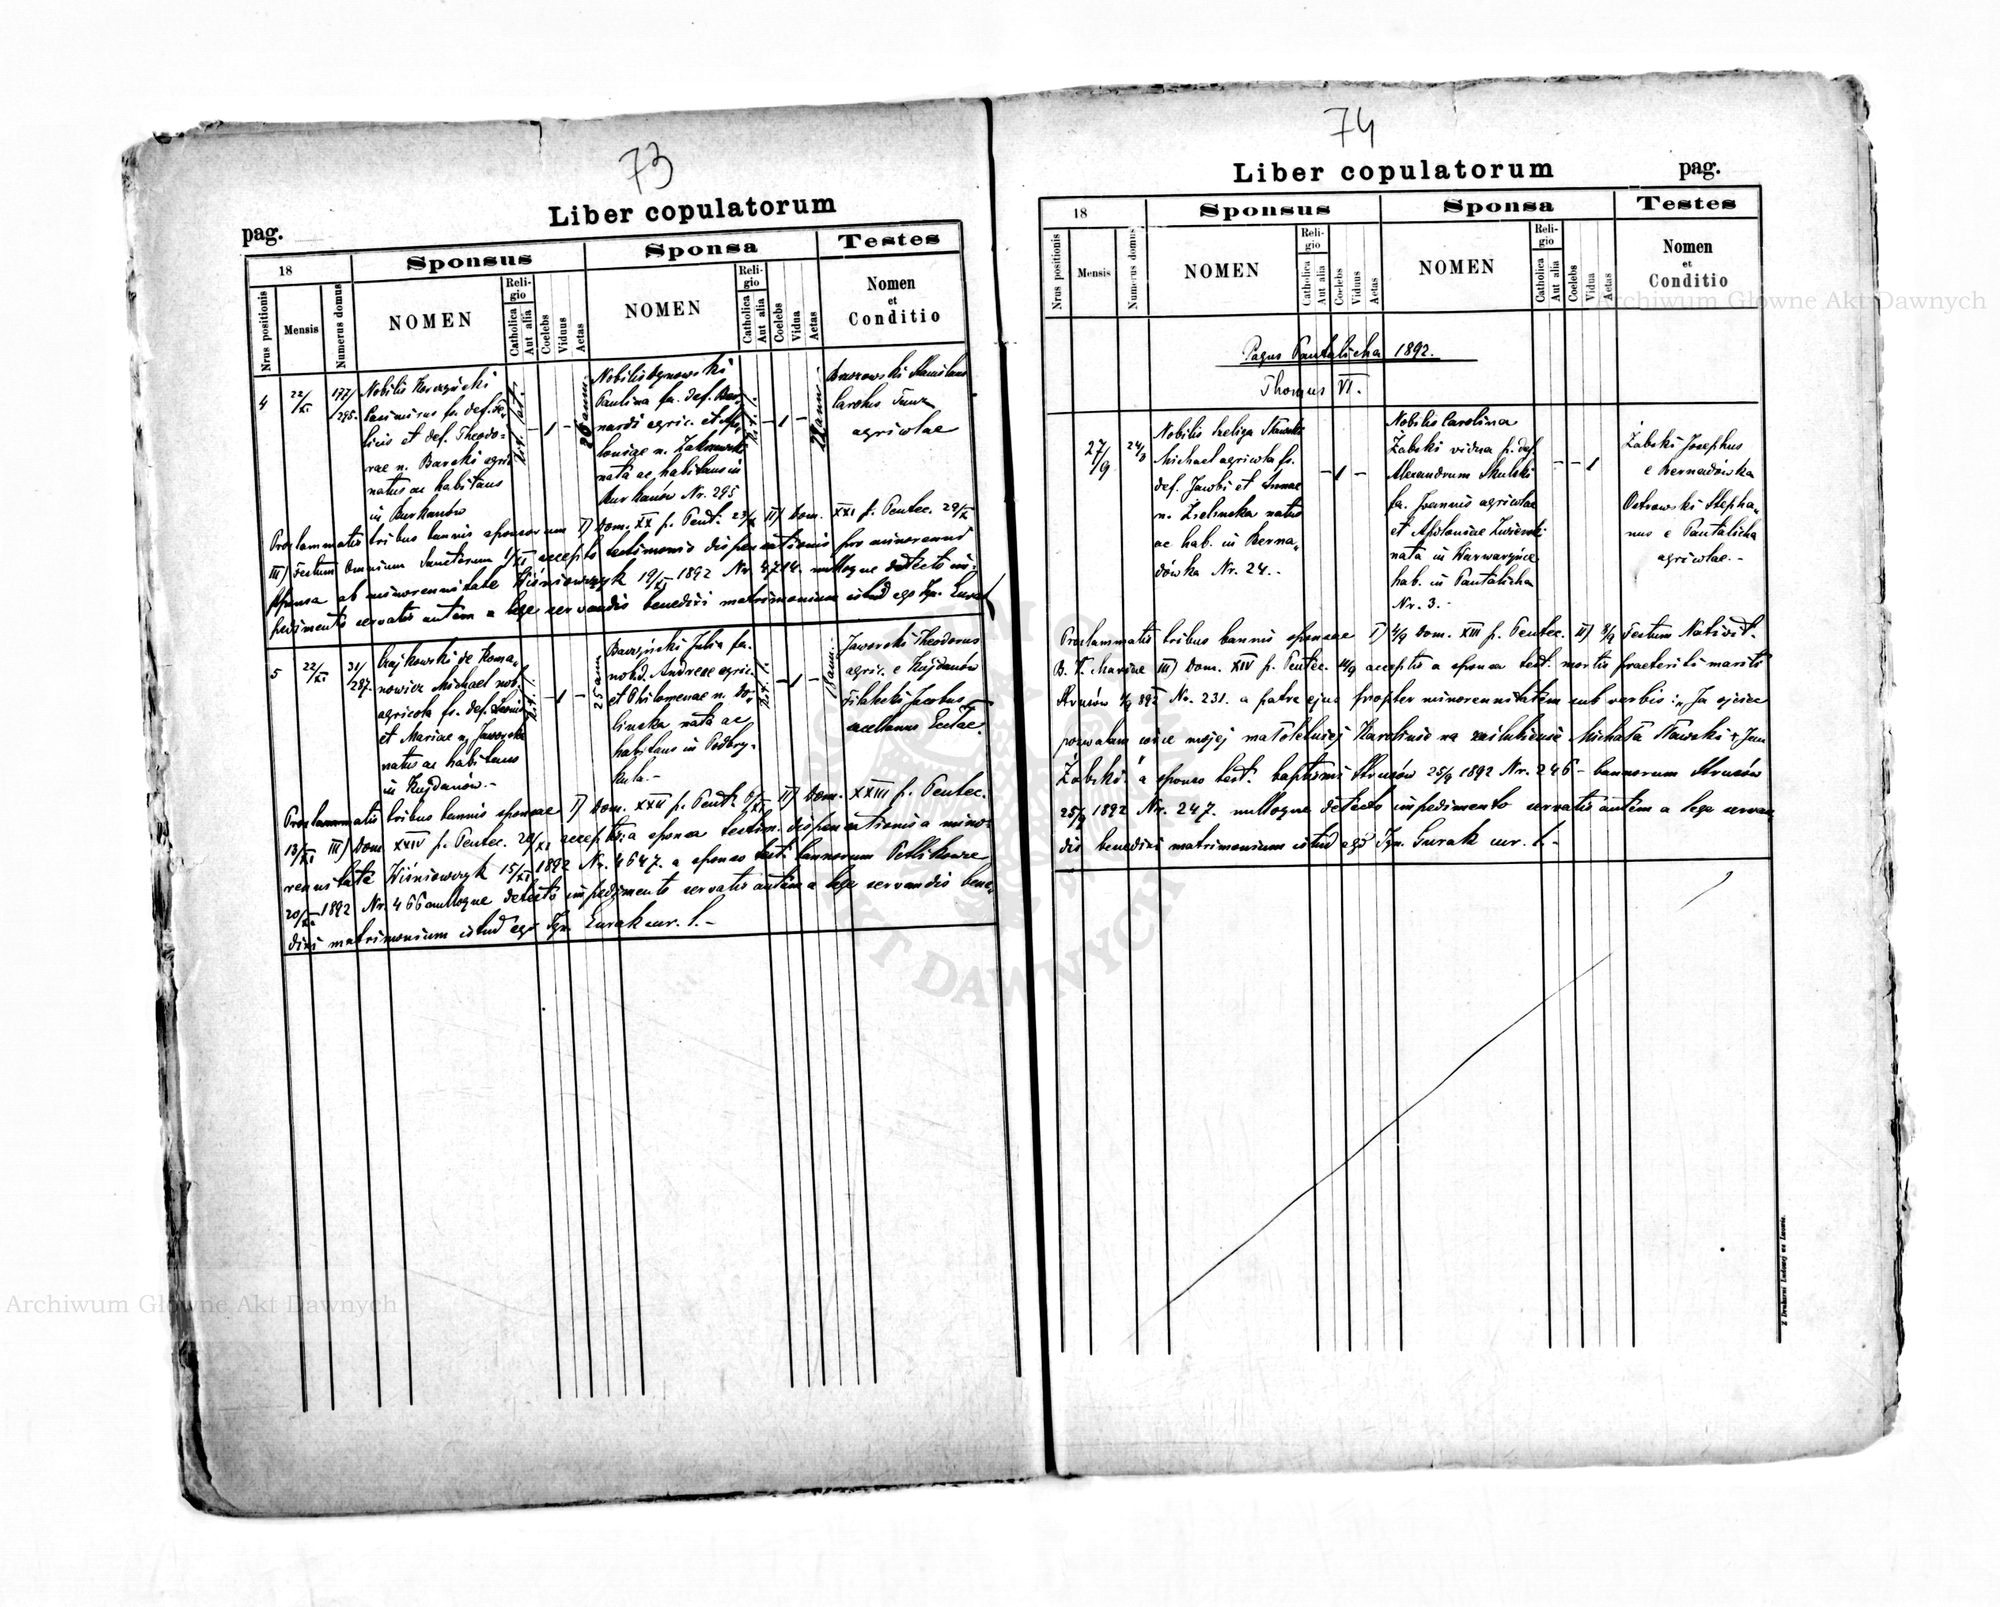 73
pag.
Liber copulatorum
18
Sponsus
Sponsa
Testes
Nrus positionis
Mensis
Numerus domus
NOMEN
Religio
Catholica
Aut alia
Coelebs
Viduus
Aetas
NOMEN
Religio
Catholica
Aut alia
Coelebs
Vidua
Aetas
Nomen
et
Conditio
4
22/XI
177/295.
Nobilis
Casimirus fs. def. Fe-
licis et def. Theodo-
rae n. Barski agric
natus ac habitans
in Burkanów
1
26 ann.
Nobilis
Paulina fa. def. Ber-
nardi agric. et Apo-
loniae n.
nata ac habitans in
Burkanów Nr. 295
1
Stanislaus
Carolus
agricolae
Proclammatis tribus bannis sponsorum I) Dom. XX p. Pent. 23/X II) Dom. XXI p. Pentec. 29/X
III) Festum Omnium Sanctorum 1/XI accepto testimonio dispensationis pro minorenni
sponsa ab minorennitate Wiśniowczyk 19/XI 1892 Nr. 4714. nulloque detecto im-
pedimento servatis autem a lege servandis benedixi matrimonium istud ego Ign.
5
22/XI
31/287.
Czajkowski de Roma-
nowicz Michael nob.
agricola fs. def.
et Mariae n. Jaworska
natus ac habitans
in Kujdanów.-
1
25 ann.
Baczyński Julia fa.
nob. Andreae agric.
et Philomenae n. Do-
linska nata ac
habitans in Podhay-
1
18 ann.
Jaworski Theodorus
agric. e Kujdanów
Jacobus
Eccلae.
Proclammatis tribus bannis sponsae I) Dom. XXII p. Pent. 6/XI II) Dom. XXIII p. Pentec.
13/XI III) Dom XXIV p. Pentec. 20/XI acceptis: a sponsa testim. dispensationis a mino-
rennitate Wiśniowczyk 15/XI 1892 Nr. 4647. a sponso test. bannorum Petlikowce
20/XI 1892 Nr. 466 nulloque detecto impedimento servatis autem a lege servandis bene-
dixi matrimonium istud ego Ign. Gurak cur. l.-
74
Liber copulatorum
pag.
18
Sponsus
Sponsa
Testes
Nrus positionis
Mensis
Numerus domus
NOMEN
Religio
Catholica
Aut alia
Coelebs
Viduus
Aetas
NOMEN
Religio
Catholica
Aut alia
Coelebs
Vidua
Aetas
Nomen
et
Conditio
Pagus Pantalicha 1892.
Thomus VI.
27/9
24/3
Nobilis Szeliga Sławski
Michael agricola fs.
def. Jacobi et Annae
n. Zielinska natus
ac hab. in Berna-
dówka Nr. 24.-
1
Nobilis Carolina
Żabski vidua p. def.
Alexandrum Skulski
fa. Joannis agricolae
et Apoloniae
nata in Warwaryńce
hab. in Pantalicha
Nr. 3.-
1
Żabski Josephus
e Bernadówka
Ostrowski Stepha-
nus e Pantalicha
agricolae.-
Proclammatis tribus bannis sponsae I) 4/9 Dom. XIII p. Pentec. II) 8/9 Festum Nativit.
B. V. Mariae III) Dom. XIV p. Pentec. 11/9 acceptis a sponsa test. mortis praeteriti mariti
Strusów 4/9 892 Nr. 231. a patre ejus propter minorennitatem sub verbis: „Ja ojciec
pozwalam córce mojej małoletniej Karolinie na zaślubienie Michała Sławski + Jan
Żabski. a sponso test. baptismi Strusów 25/9 1892 Nr. 246 - bannorum Strusów
25/9 1892 Nr. 247. nulloque detecto impedimento servatis autem a lege servan
dis benedixi matrimonium istud ego Ign. Gurak cur. l.-
Z Drukarni Ludowej we Lwowie.
Archiwum Główne Akt Dawnych
Archiwum Główne Akt Dawnych
AKT DAWNYCH